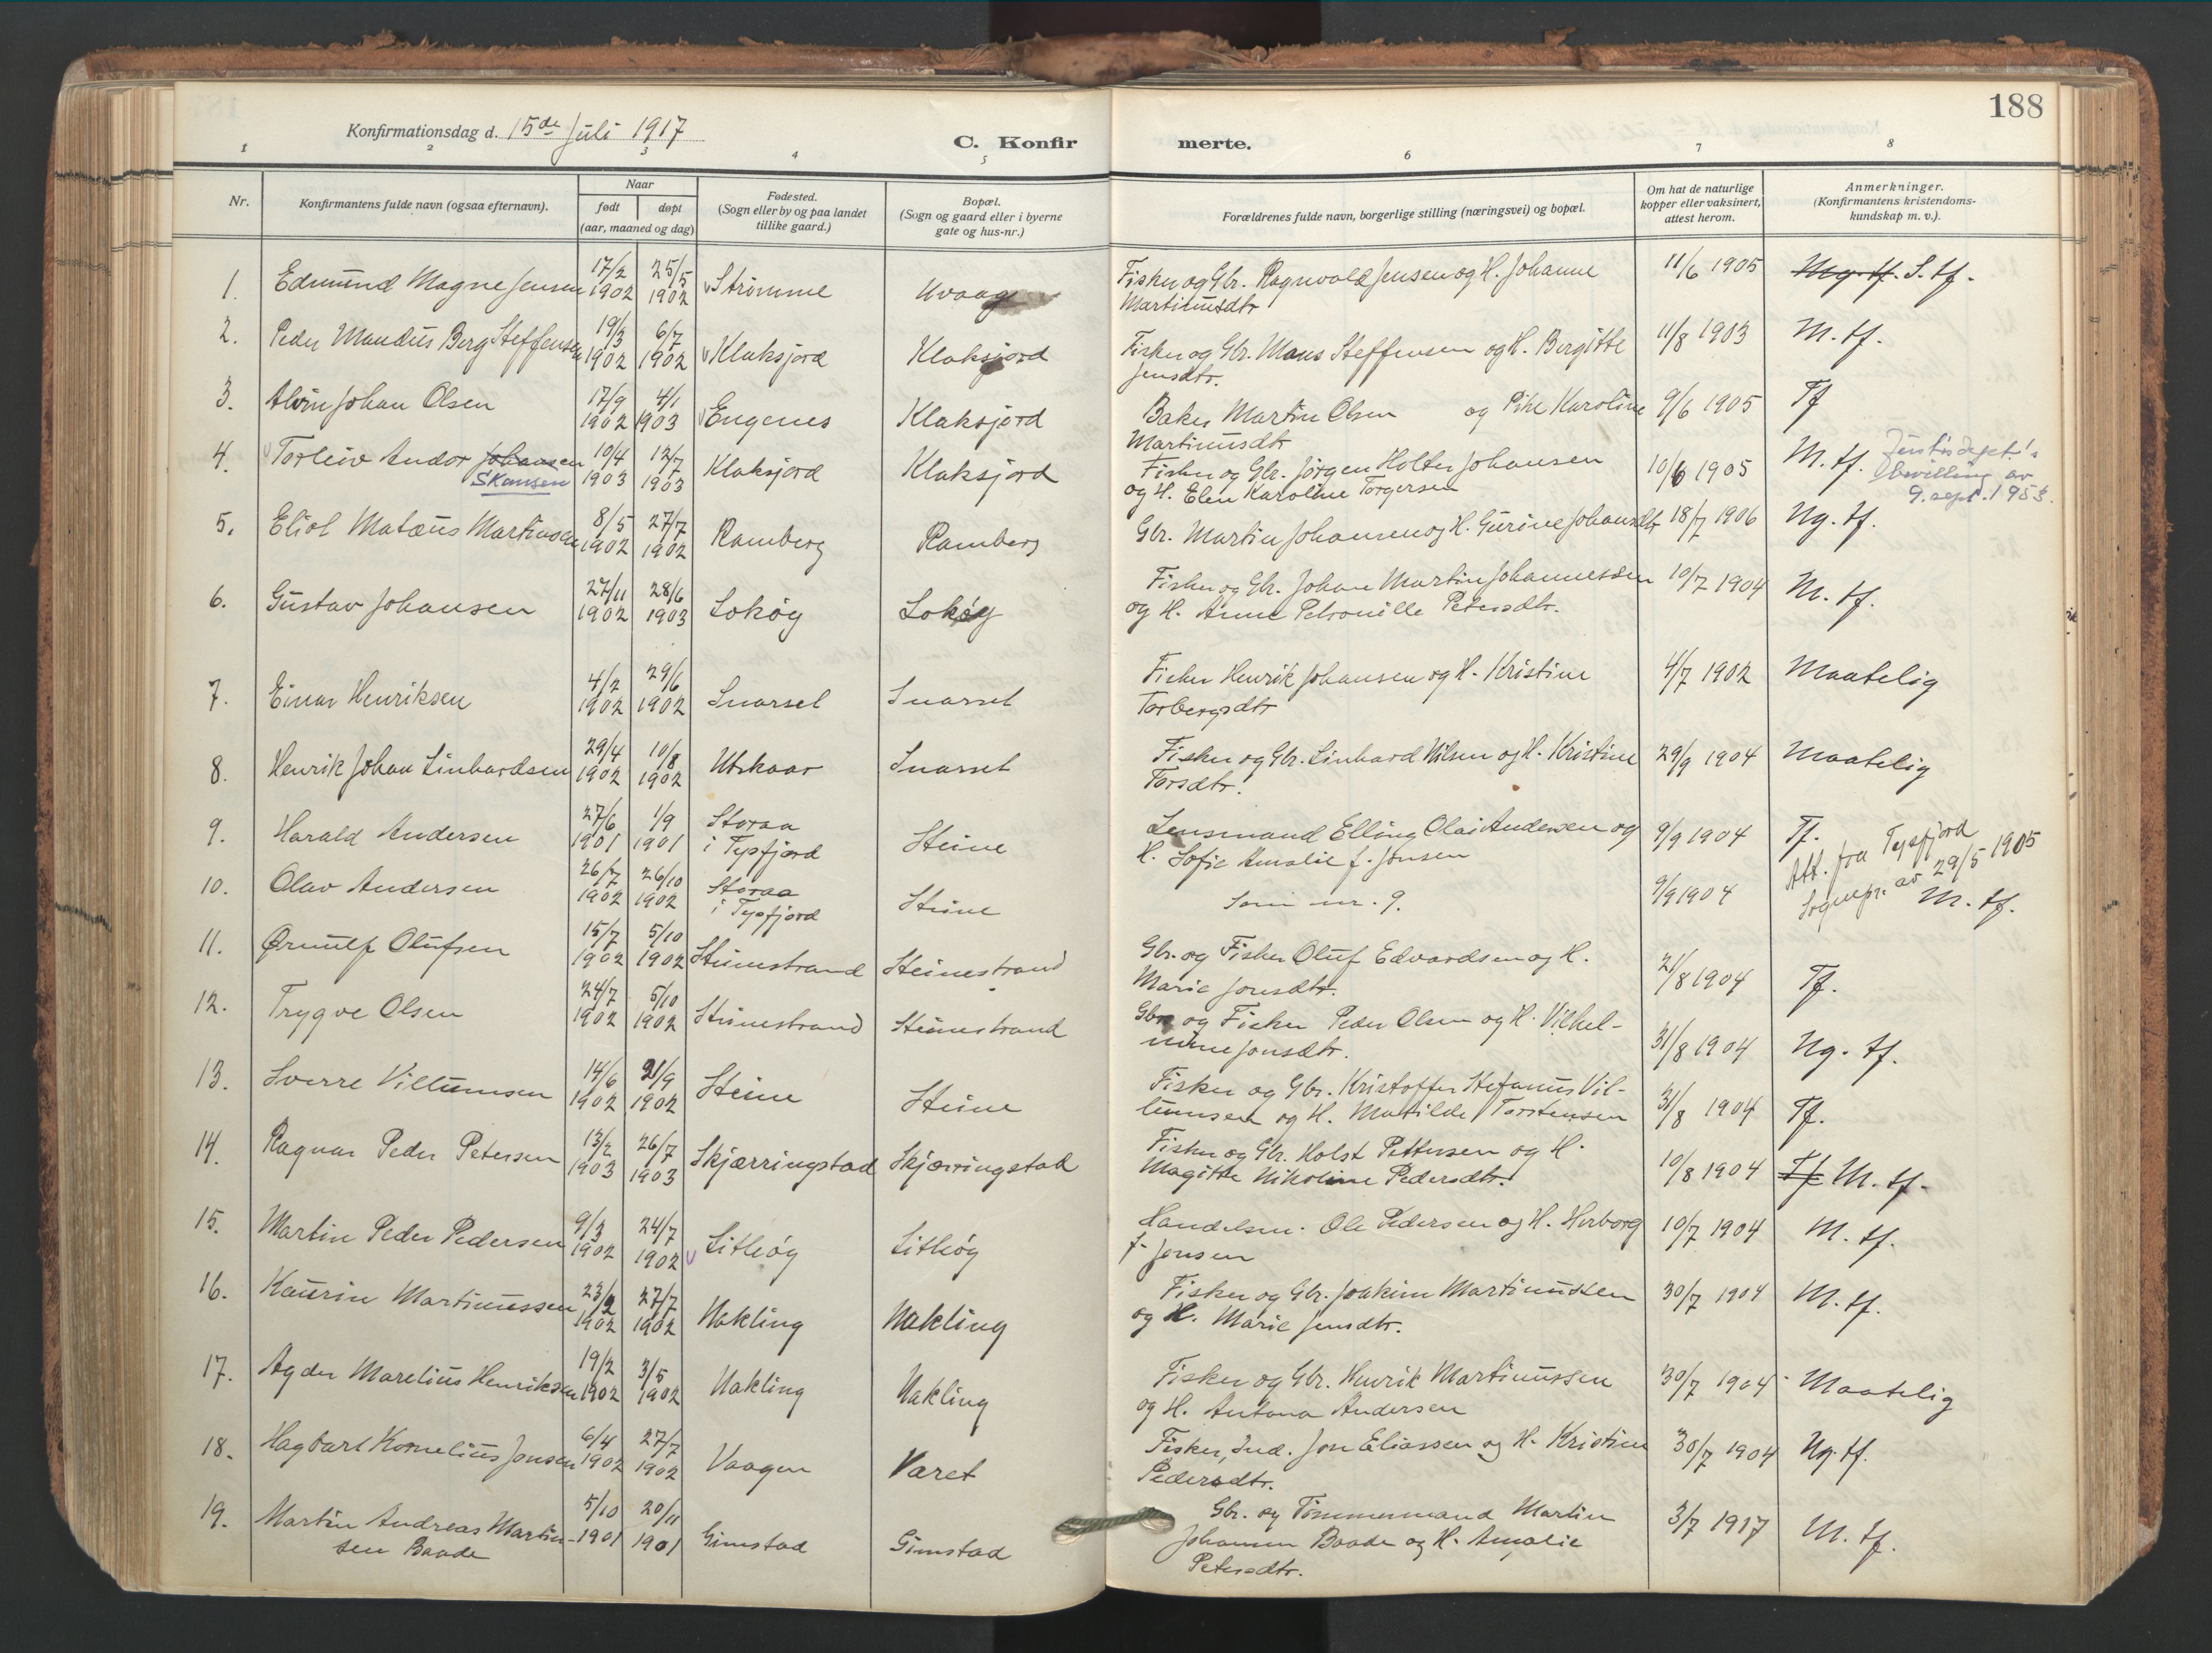 188
Konfirmationsdag d. 15de Juli 1917
C. Konfir merte.
1 2 3 4 5 6 7 8
Nr.
Konfirmantens fulde navn (ogsaa efternavn).
Naar
født døpt
(aar, maaned og dag)
Fødested.
(Sogn eller by og paa landet
tillike gaard.)
Bopæl.
(Sogn og gaard eller i byerne
gate og hus-nr.)
Forældrenes fulde navn, borgerlige stilling (næringsvei) og bopæl.
Om hat de naturlige
kopper eller vaksinert,
attest herom.
Anmerkninger.
(Konfirmantens kristendoms-
kundskap m. v.).
1. Edmund Magne Jensen 17/2 1902 25/5 1902 Strømme Uvaag Fisker og Gbr. Ragnvald Jensen og H. Johanne 11/6 1905 Mg. tf. S. tf.
Martinusdtr
2. Peder Mandus Berg Steffensen 19/3 1902 6/7 1902 Klaksjord Klaksjord Fisker og Gbr. Mons Steffensen og H. Bergitte 11/8 1903 M. tf.
Jensdtr.
3. Alvin Johan Olsen 17/9 1902 4/1 1903 Engenes Klaksjord Baker Martin Olsen og Pike Karoline 9/6 1905 Tf
Martinusdtr
4. Torleiv Andor Johansen 10/4 1903 12/7 1903 Klaksjord Klaksjord Fisker og Gbr. Jørgen Holter Johansen 10/6 1905 M. tf.
Skansen
og H. Elen Karoline Torgersen
bevilling av
9. sept. 1953.
5. Eliot Matæus Martinsen 8/5 1902 27/7 1902 Ramberg Ramberg Gbr. Martin Johansen og H. Gurine Johansdtr 18/7 1906 Ng. tf.
6. Gustav Johansen 27/11 1902 28/6 1903 Lokøy Lokøy Fisker og Gbr. Johan Martin Johannessen 10/7 1904 M. tf.
og H. Anne Petronille Petersdtr.
7. Einar Henriksen 4/2 1902 29/6 1902 Snarset Snarset Fisker Henrik Johansen og H. Kristine 4/7 1902 Maatelig
Torbergsdtr
8. Henrik Johan Linhardsen 29/4 1902 10/8 1902 Utskaar Snarset Fisker og Gbr. Linhard Nilsen og H. Kristine 29/9 1904 Maatelig
Torsdtr.
9. Harald Andersen 27/6 1901 1/9 1901 Storaa i Tysfjord Steine Lensmand Elling Olai Andersen og 9/9 1904 Tf.
H. Sofie Amalie f. Jensen
10. Olav Andersen 26/7 1902 26/10 1902 Storaa i Tysfjord Steine Som nr. 9. 9/9 1904 Att. fra Tysfjord
Sognepr. av 29/5 1905
M. tf.
11. Ørnulf Olufsen 15/7 1902 5/10 1902 Steinestrand Steinestrand Gbr. og Fisker Oluf Edvardsen og H. 21/8 1904 Tf.
Marie Jonsdtr.
12. Trygve Olsen 24/7 1902 5/10 1902 Steinestrand Steinestrand Gbr. og Fisker Peder Olsen og H. Vilhel- 31/8 1904 Ng. tf.
mine Jonsdtr.
13. Sverre Villumsen 14/6 1902 21/9 1902 Steine Steine Fisker og Gbr. Kristoffer Stefanus Vil- 31/8 1904 Tf.
lumsen og H. Matilde Torstensen
14. Ragnar Peder Petersen 13/2 1903 26/7 1903 Skjærringstad Skjærringstad Fisker og Gbr. Holst Pettersen og H. 10/8 1904 Tf M. tf.
Magitte Nikoline Pedersdtr.
15. Martin Peder Pedersen 9/3 1902 24/7 1902 Litløy Litløy Handelsm. Ole Pedersen og H. Herborg 10/7 1904 M. tf.
f. Jensen
16. Kaurin Martinussen 23/2 1902 27/7 1902 Nakling Nakling Fisker og Gbr. Joakim Martinussen 30/7 1904 M. tf.
og H. Marie Jensdtr.
17. Agder Marelius Henriksen 19/2 1902 3/5 1902 Nakling Nakling Fisker og Gbr. Henrik Martinussen 30/7 1904 Maatelig
og H. Antona Andersen
18. Hagbart Kornelius Jonsen 6/4 1902 27/7 1902 Vaagen Varet Fisker, Ind. Jon Eliassen og H. Kristine 30/7 1904 Ng. tf.
Pedersdtr.
19. Martin Andreas Martin- 5/10 1901 20/11 1901 Gimstad Gimstad Gbr. og Tømmermand Martin 3/7 1917 M. tf.
sen Baade
Johansen Baade og H. Amalie
Petersdtr.